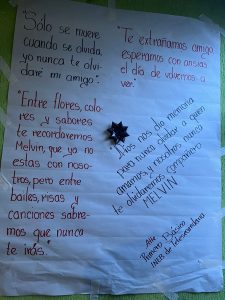 "Sólo se muere
cuando se olvida,
yo nunca te olvi-
daré mi amigo".
"Entre flores, colo-
res y sabores
te recordaremos
Melvin, que ya no
estas con noso-
tros, pero entre
bailes, risas y
canciones sabre-
mos que nunca
te irás"
"Te extrañamos amigo
esperamos con ansias
el día de volvernos a
ver."
Dios nos dio memoria
para nunca olvidar a quien
amamos, y nosotros nunca
te olvidaremos compañero
MELVIN
Att:
Primero Básico
INEB de Telesecundaria